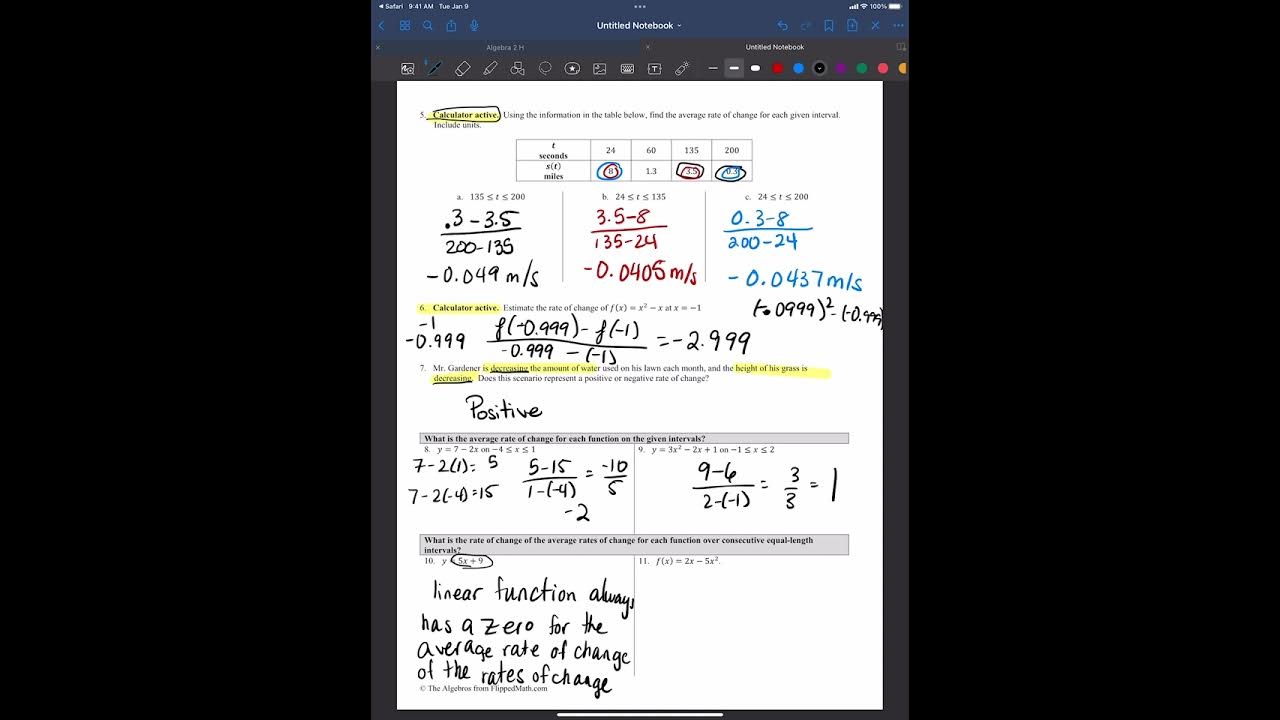 Safari 9:41 AM Tue Jan 9
100%
Untitled Notebook
Algebra 2 H
Untitled Notebook
5. Calculator active. Using the information in the table below, find the average rate of change for each given interval.
Include units.
t seconds 24 60 135 200
s(t) miles 8 1.3 3.5 0.3
a. 135 ≤ t ≤ 200
b. 24 ≤ t ≤ 135
c. 24 ≤ t ≤ 200
.3 - 3.5
200 - 135
-0.049 m/s
3.5 - 8
135 - 24
-0.0405 m/s
0.3 - 8
200 - 24
-0.0437 m/s
6. Calculator active. Estimate the rate of change of f(x) = x² − x at x = −1
-1
-0.999
f(-0.999) - f(-1)
-0.999 - (-1)
= -2.999
(-.0999)² - (-0.999)
7. Mr. Gardener is decreasing the amount of water used on his lawn each month, and the height of his grass is
decreasing. Does this scenario represent a positive or negative rate of change?
Positive
What is the average rate of change for each function on the given intervals?
8. y = 7 − 2x on −4 ≤ x ≤ 1
7 - 2(1) = 5
7 - 2(-4) = 15
5 - 15
1 - (-4)
= -10/5
-2
9. y = 3x² − 2x + 1 on −1 ≤ x ≤ 2
9 - 6
2 - (-1)
= 3/3 = 1
What is the rate of change of the average rates of change for each function over consecutive equal-length
intervals?
10. y = 5x + 9
linear function always
has a zero for the
average rate of change
of the rates of change
11. f(x) = 2x − 5x².
© The Algebros from FlippedMath.com